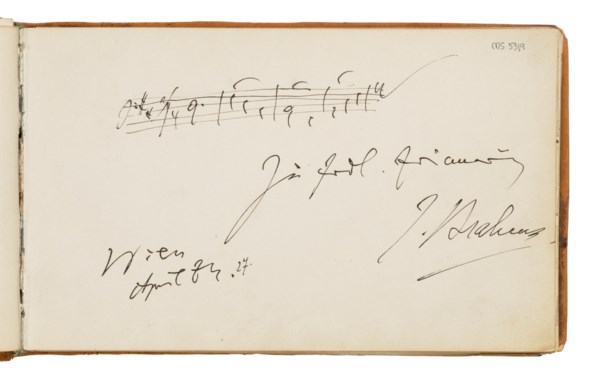 COS 53/9
Zu frdl. Erinnerung
J. Brahms.
Wien
April 84.